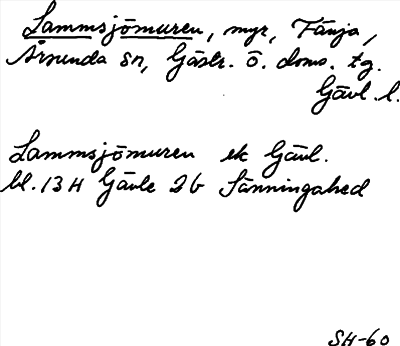 Lammsjömuren, myr, Fänja,
Årsunda sn, Gästr. ö. doms. tg.
Gävl. l.
Lammsjömuren ek Gävl.
bl. 13 H Gävle 2 b Sänningahed
SH-60